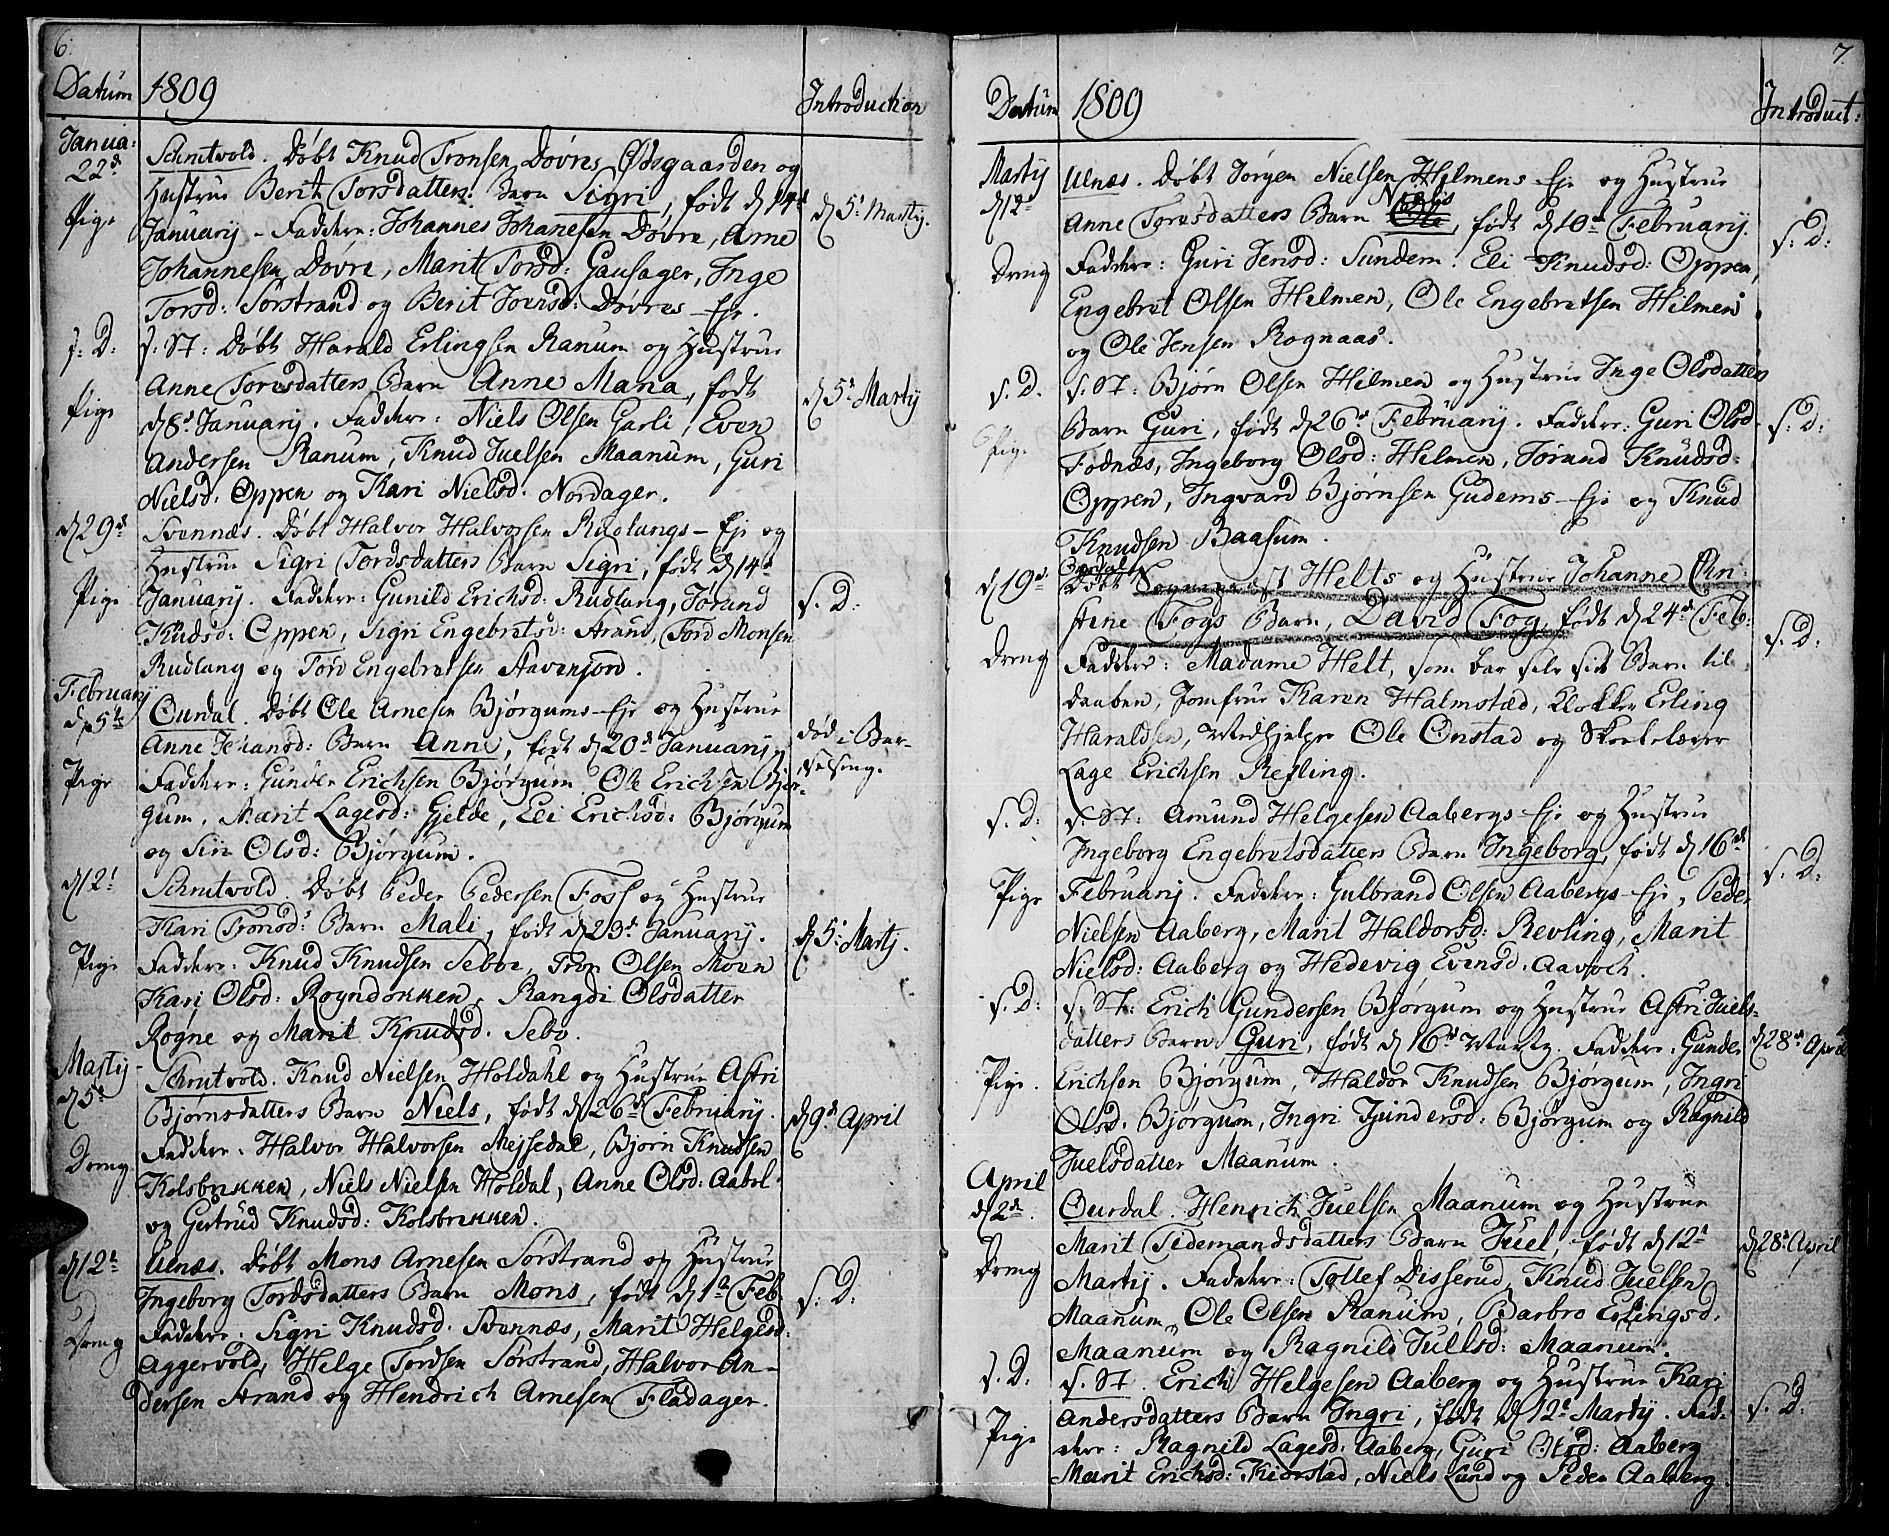 6.
Datum 1809 Introduction
Janua:
22d
Pige
Schrutvold. Døbt Knud Tronsen Dovres Ødegaarden og
Hustrue Berit Torsdatters Barn Sigri, født d 14d
Januarij - Faddere: Johannes Johanesen Dovre, Arne
Johannesen Dovre, Marit Torsd: Gausager, Inge
Torsd: Sørstrand og Berit Joensd: Dovres-Eje.
d 5t Martij.
s: D:
Pige
s: St: Døbt Harald Erlingsen Ranum og Hustrue
Anne Toresdatters Barn Anne Maria, født
d 8d Januarij. Faddere: Niels Olsen Garli, Even
Andersen Ranum, Knud Juelsen Maanum, Guri
Nielsd: Oppen og Kari Nielsd. Nordager.
d 5t Martij
d 29d
Pige
Svennæs. Døbt Halvor Halvorsen Rudlangs-Eje og
Hustrue Sigri Tordsdatters Barn Sigri, født d 14d
Januarij. Faddere: Gunild Erichsd: Rudlang, Jørand
Knudsd: Oppen, Sigri Engebretsd: Strand, Tord Monsen
Rudlang og Tord Engebretsen Stavenjord.
s. D:
Februarij
d 5te
Pige
Ourdal. Døbt Ole Arnesen Bjørgums-Eje og Hustrue
Anne Johansd: Barn Anne, født d 20d Januarij
Faddere: Gunder Erichsen Bjørgum, Ole Erichsen Bjør-
gum, Marit Lagesd: Gjelde, Eli Erichsd: Bjørgum
og Siri Olsd: Bjørgum.
død i Bar-
selseng.
d 12t
Pige
Schrutvold. Døbt Peder Pedersen Foss og Hustrue
Kari Tronsd: Barn Mali, født d 29d Januarij.
Faddere: Knud Knudsen Seboe, Tron Olsen Moen
Kari Olsd: Rogndokken, Rangdi Olsdatter
Rogne og Marit Knudsd. Sebo.
d 5t Martij.
Martij
d 5t
Dreng
Schrutvold. Knud Nielsen Holdahl og Hustrue Astri
Bjørnsdatters Barn Niels, født d 26d Februarij.
Faddere: Halvor Halvorsen Mejsedal, Bjørn Knudsen
Kolsbrekken, Niels Nielsen Holdal, Anne Olsd: Aabol
og Gertrud Knudsd: Kolsbrekken.
d 9d April
d 12t
Dreng
Ulnæs. Døbt Mons Arnesen Sørstrand og Hustrue
Ingeborg Tordsdatters Barn Mons, født d 1te Feb.
Faddere: Sigri Knudsd. Svennæs, Marit Helgesd:
Aggervold, Helge Tordsen Sørstrand, Halvor An-
dersen Strand og Hendrich Arnesen Fladager.
s. D:
7.
Datum 1809 Introduct:
Martij
d 12t
Dreng
Ulnæs. Døbt Jørgen Nielsen Helmens-Eje og Hustrue
Anne Toresdatters Barn Niels, født d 10de Februarij.
Faddere: Guri Jensd: Sundem. Eli Knudsd: Oppen,
Engebret Olsen Helmen, Ole Engebretsen Helmen
og Ole Jensen Rognaas.
s: D:
s. D.
Pige
s. St: Bjørn Olsen Helmen og Hustrue Inge Olsdatters
Barn Guri, født d 26d Februarij. Faddere: Guri Olsd:
Fodnæs, Ingeborg Olsd: Helmen, Jørand Knudsd:
Oppen, Ingvard Bjørnsen Gudems-Eje og Knud
Knudsen Baasum.
s: D:
d 19d
Dreng
Ourdal
Døbt Sognepræst Helts og Hustrue Johanne Chri
stine Fogs Barn, David Fog, født d 24d Feb:
Faddere: Madame Helt, som bar selv sit Barn til
Daaben, Jomfrue Karen Halmstad, Klokker Erling
Haraldsen, Medhjelper Ole Onstad og Skoelelærer
Lage Erichsen Refling.
s. D:
s. D:
Pige
s. St: Amund Helgesen Aabergs-Eje og Hustrue
Ingeborg Engebretsdatters Barn Ingeborg, født d 16de
Februarij. Faddere: Gulbrand Olsen Aabergs-Eje, Peder
Nielsen Aaberg, Marit Haldorsd: Revling, Marit
Nielsd: Aaberg og Hedevig Evensd. Aavoch.
s: D:
s: D:
Pige.
s. St: Erich Gundersen Bjørgum og Hustrue Astri Juels-
datters Barn Guri, født d 16d Martij. Faddere: Gunder
Erichsen Bjørgum, Haldor Knudsen Bjørgum, Ingri
Olsd. Bjørgum, Ingri Gundersd: Bjørgum og Ragnild
Juelsdatter Maanum.
d 28d April
April
d 2de.
Dreng
Ourdal. Henrich Juelsen Maanum og Hustrue
Marit Tidemandsdatters Barn Juel, født d 12t
Martij. Faddere: Tollef Disserud, Knud Juelsen
Maanum, Ole Olsen Ranum, Barbro Erlingsd.
Maanum og Ragnild Juelsd: Maanum.
d 28d April
s. D.
Pige
s. St. Erich Helgesen Aaberg og Hustrue Kari
Andersdatters Barn Ingri, født d 12t Martij. Fad-
dere: Ragnild Lagesd: Aaberg, Guri Olsd: Aaberg
Marit Erichsd: Kiørstad, Niels Lund og Peder Aaberg.
s. D.